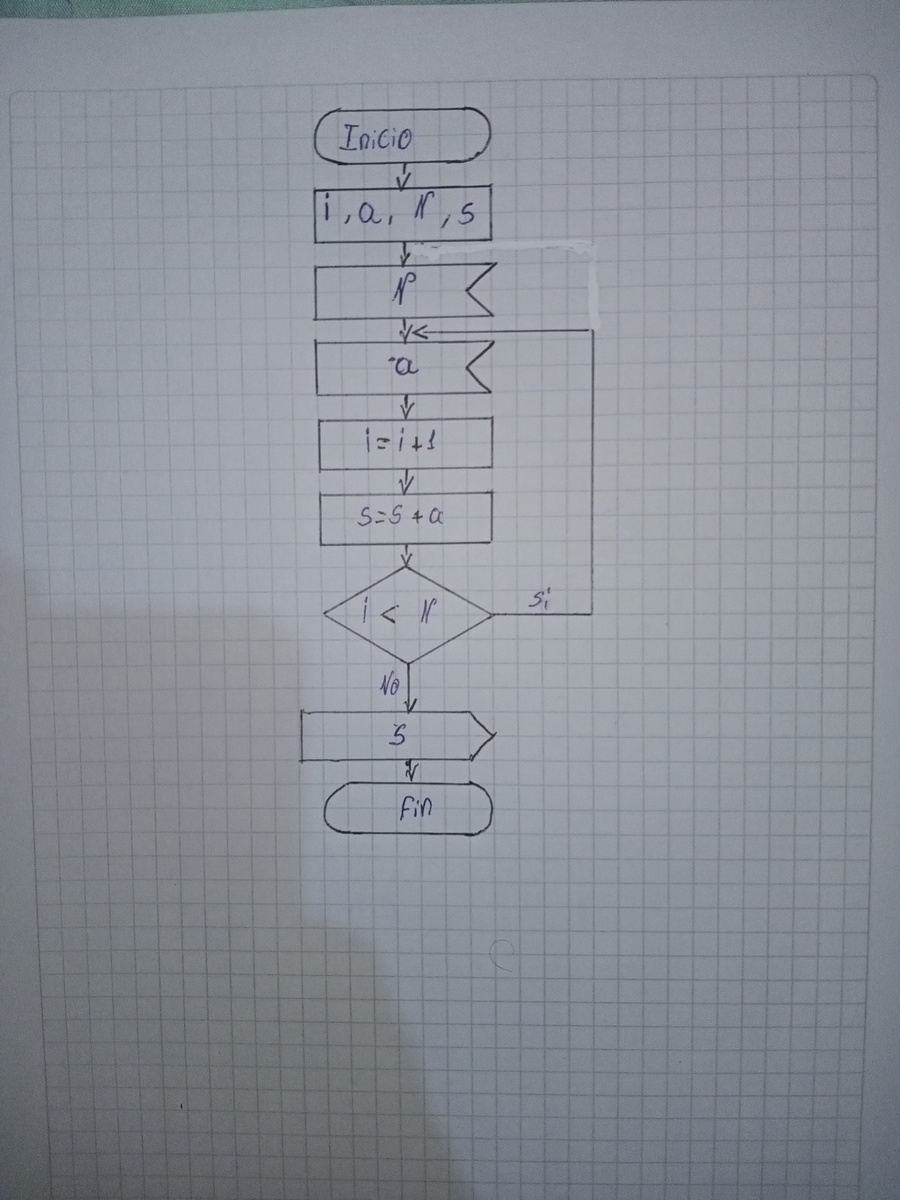 Inicio
i, a, N, s
N
a
i = i + 1
S = S + a
i < N
Si
No
S
Fin